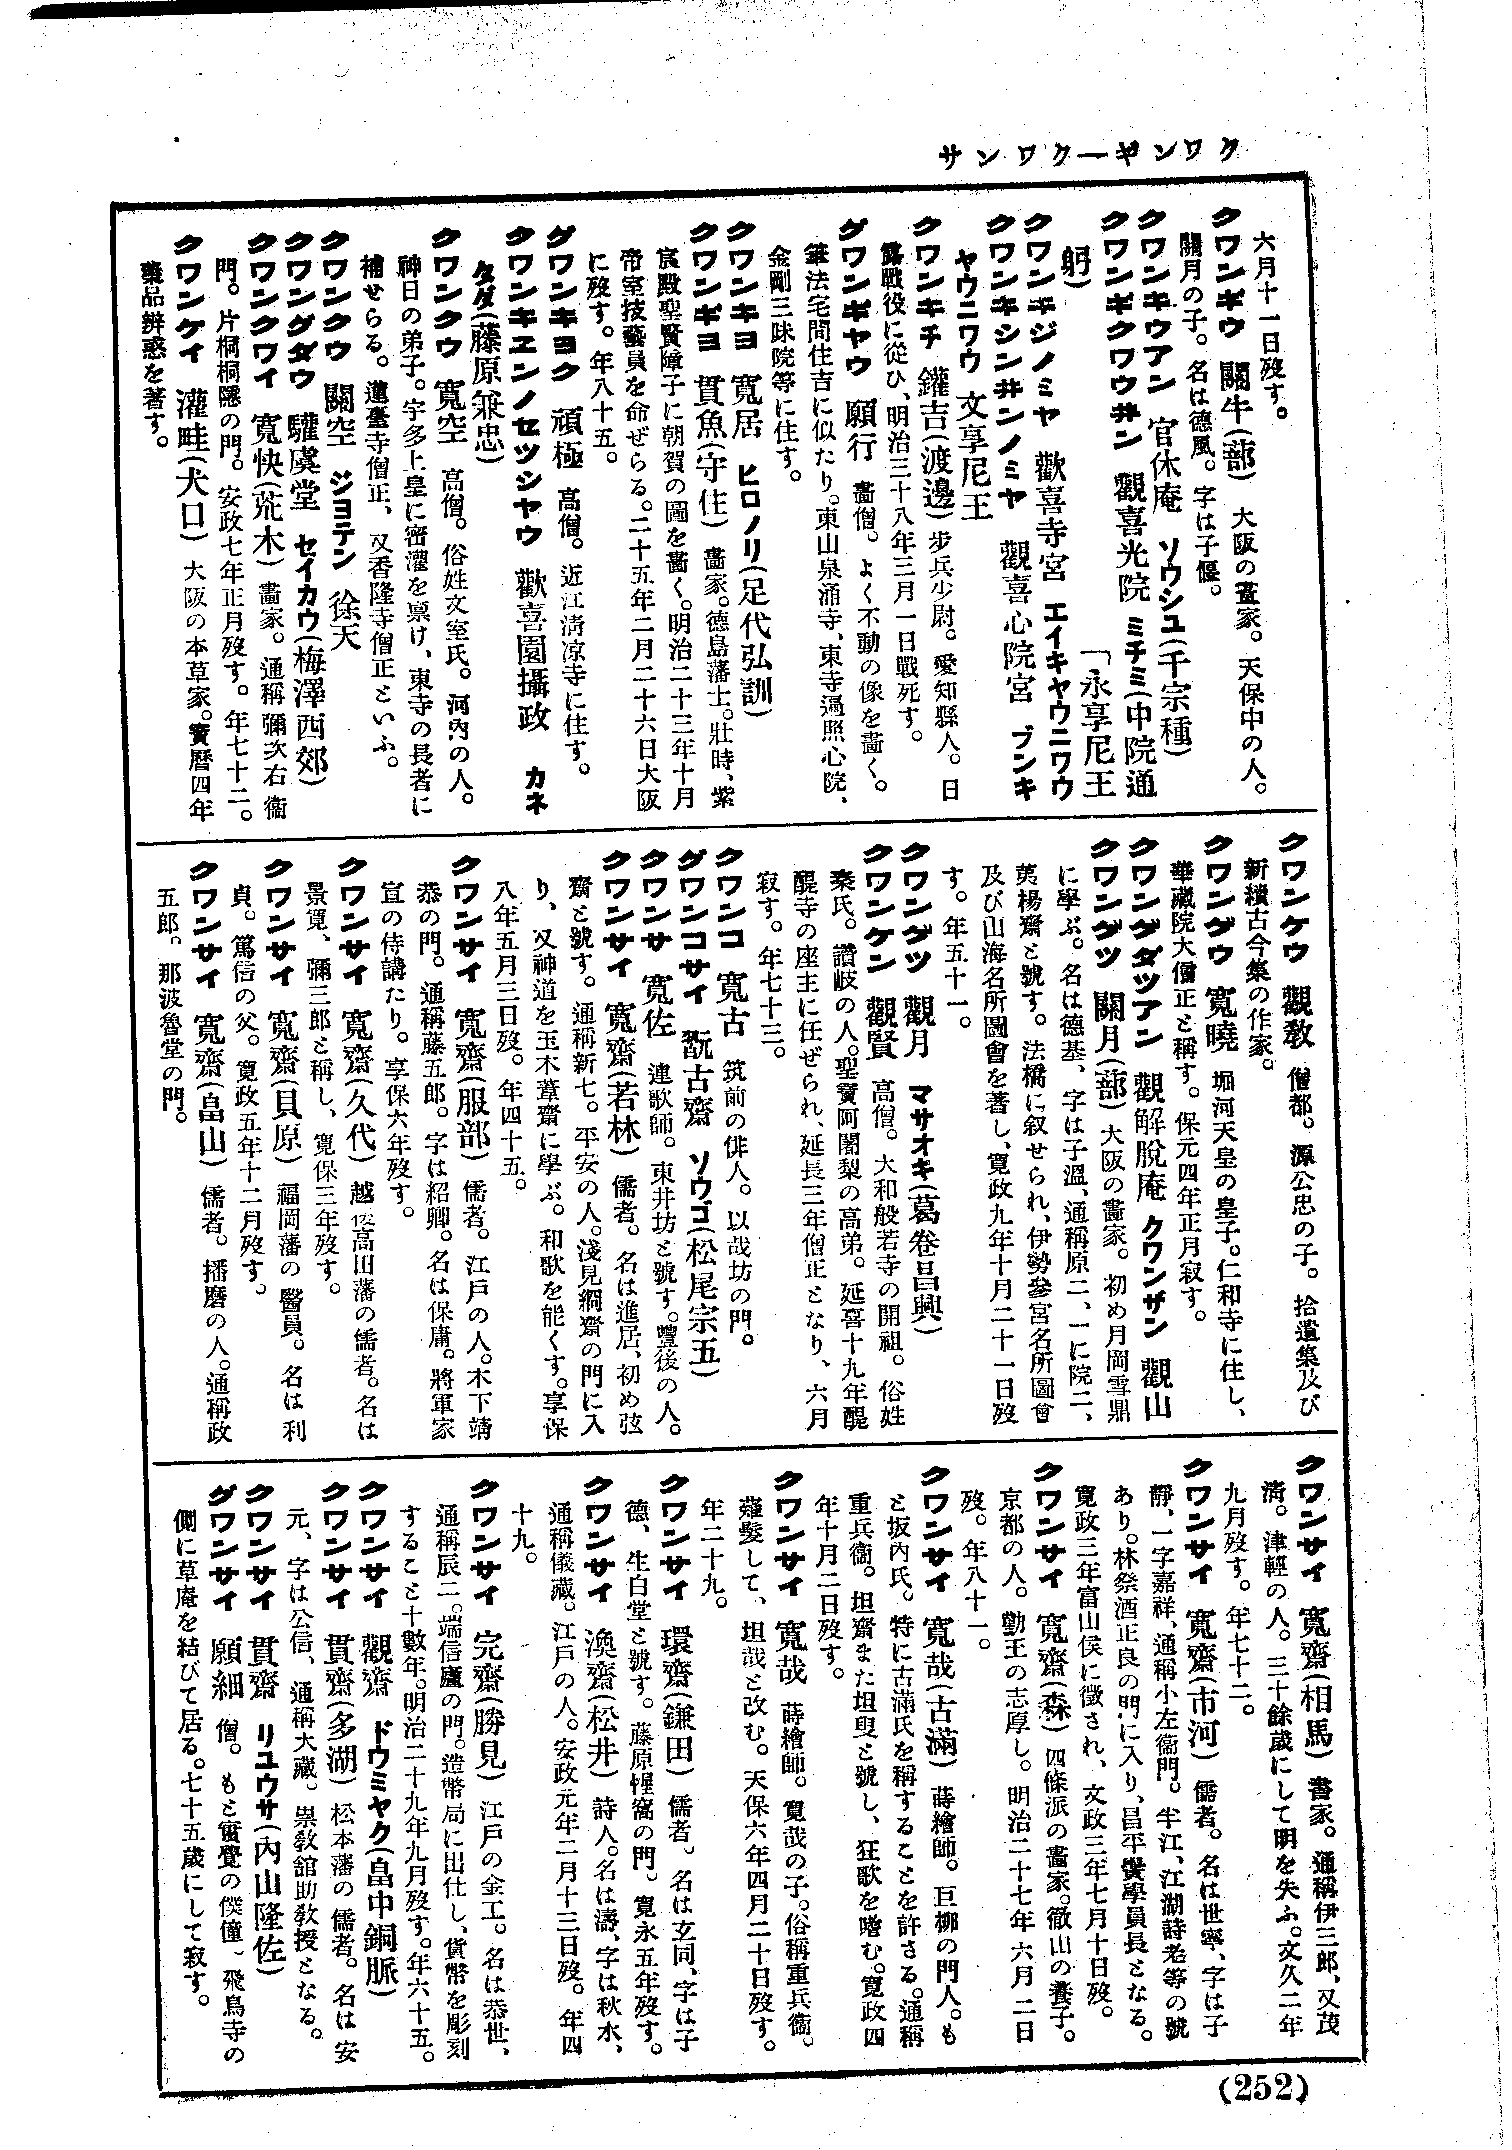 クワンギ―クワンサ
六月十一日歿す。
クワンギウ 關牛(蔀) 大阪の畫家。天保中の人。
關月の子。名は德風。字は子偃。
クワンキウアン 官休庵 ソウシユ(千宗種)
クワンギクワウ井ン 觀喜光院 ミチミ(中院通
躬)
クワンキジノミヤ 歡喜寺宮 エイキヤウニワウ
「永享尼王
クワンキシン井ンノミヤ 觀喜心院宮 ブンキ
ヤウニワウ 文享尼王
クワンキチ 鑵吉(渡邊) 步兵少尉。愛知縣人。日
露戰役に從ひ、明治三十八年三月一日戰死す。
グワンギヤウ 願行 畵僧。よく不動の像を畵く。
筆法宅間住吉に似たり。東山泉涌寺、東寺遍照心院、
金剛三昧院等に住す。
クワンキヨ 寬居 ヒロノリ(足代弘訓)
クワンギヨ 貫魚(守住) 畵家。德島藩士。壯時、紫
宸殿聖賢障子に朝賀の圖を畵く。明治二十三年十月
帝室技藝員を命ぜらる。二十五年二月二十六日大阪
に歿す。年八十五。
グワンキヨク 頑極 高僧。近江淸凉寺に住す。
クワンキエンノセツシヤウ 歡喜園攝政 カネ
タダ(藤原兼忠)
クワンクウ 寬空 高僧。俗姓文室氏。河內の人。
神日の弟子。宇多上皇に密灌を禀け、東寺の長者に
補せらる。蓮臺寺僧正、又香隆寺僧正といふ。
クワンクウ 關空 ジヨテン 徐天
クワングダウ 驩虞堂 セイカウ(梅澤西郊)
クワンクワイ 寬快(荒木) 畵家。通稱彌次右衞
門。片桐桐隱の門。安政七年正月歿す。年七十二。
クワンケイ 灌畦(犬口) 大阪の本草家。寶曆四年
藥品辨惑を著す。
クワンケウ 觀敎 僧都。源公忠の子。拾遺集及び
新續古今集の作家。
クワンゲウ 寬曉 堀河天皇の皇子。仁和寺に住し、
華藏院大僧正と稱す。保元四年正月寂す。
クワンゲダツアン 觀解脫庵 クワンザン 觀山
クワンゲツ 關月(蔀) 大阪の畵家。初め月岡雪鼎
に學ぶ。名は德基、字は子溫、通稱原二、一に院二、
荑楊齋と號す。法橋に叙せられ、伊勢參宮名所圖會
及び山海名所圖會を著し、寬政九年十月二十一日歿
す。年五十一。
クワンゲツ 觀月 マサオキ(葛卷昌興)
クワンケン 觀賢 高僧。大和般若寺の開祖。俗姓
秦氏。讃岐の人。聖寶阿闍梨の高弟。延喜十九年醍
醍寺の座主に任ぜられ、延長三年僧正となり、六月
寂す。年七十三。
クワンコ 寬古 筑前の俳人。以哉坊の門。
グワンコサイ 翫古齋 ソウゴ(松尾宗五)
クワンサ 寬佐 連歌師。東井坊と號す。豐後の人。
クワンサイ 寬齋(若林) 儒者。名は進居、初め弦
齋と號す。通稱新七。平安の人。淺見絅齋の門に入
り、又神道を玉木葦齋に學ぶ。和歌を能くす。享保
八年五月三日歿。年四十五。
クワンサイ 寬齋(服部) 儒者。江戸の人。木下靖
恭の門。通稱藤五郎。字は紹卿。名は保庸。將軍家
宣の侍講たり。享保六年歿す。
クワンサイ 寬齋(久代) 越後高田藩の儒者。名は
景寬、彌三郎と稱し、寬保三年歿す。
クワンサイ 寬齋(貝原) 福岡藩の醫員。名は利
貞。篤信の父。寬政五年十二月歿す。
クワンサイ 寬齋(畠山) 儒者。播磨の人。通稱政
五郎。那波魯堂の門。
クワンサイ 寬齋(相馬) 書家。通稱伊三郎、又茂
濟。津輕の人。三十餘歲にして明を失ふ。文久二年
九月歿す。年七十二。
クワンサイ 寬齋(市河) 儒者。名は世寧、字は子
靜、一字嘉祥、通稱小左衞門。半江、江湖詩老等の號
あり。林祭酒正良の門に入り、昌平黌學員長となる。
寬政三年富山侯に徵され、文政三年七月十日歿。
クワンサイ 寬齋(森) 四條派の畵家。徹山の養子。
京都の人。勤王の志厚し。明治二十七年六月二日
歿。年八十一。
クワンサイ 寬哉(古滿) 蒔繪師。巨柳の門人。も
と坂內氏。特に古滿氏を稱することを許さる。通稱
重兵衞。坦齋また坦叟と號し、狂歌を嗜む。寬政四
年十月二日歿す。
クワンサイ 寬哉 蒔繪師。寬哉の子。俗稱重兵衞。
薙髮して、坦哉と改む。天保六年四月二十日歿す。
年二十九。
クワンサイ 環齋(鎌田) 儒者。名は玄同、字は子
德、生白堂と號す。藤原惺窩の門。寬永五年歿す。
クワンサイ 渙齋(松井) 詩人。名は濤、字は秋水、
通稱儀藏。江戸の人。安政元年二月十三日歿。年四
十九。
クワンサイ 完齋(勝見) 江戸の金工。名は恭世、
通稱辰二。端信廬の門。造幣局に出仕し、貨幣を彫刻
すること十數年。明治二十九年九月歿す。年六十五。
クワンサイ 觀齋 ドウミヤク(畠中銅脈)
クワンサイ 貫齋(多湖) 松本藩の儒者。名は安
元、字は公信、通稱大藏。崇敎館助敎授となる。
クワンサイ 貫齋 リユウサ(內山隆佐)
グワンサイ 願細 僧。もと實覺の僕僮、飛鳥寺の
側に草庵を結びて居る。七十五歲にして寂す。
(252)